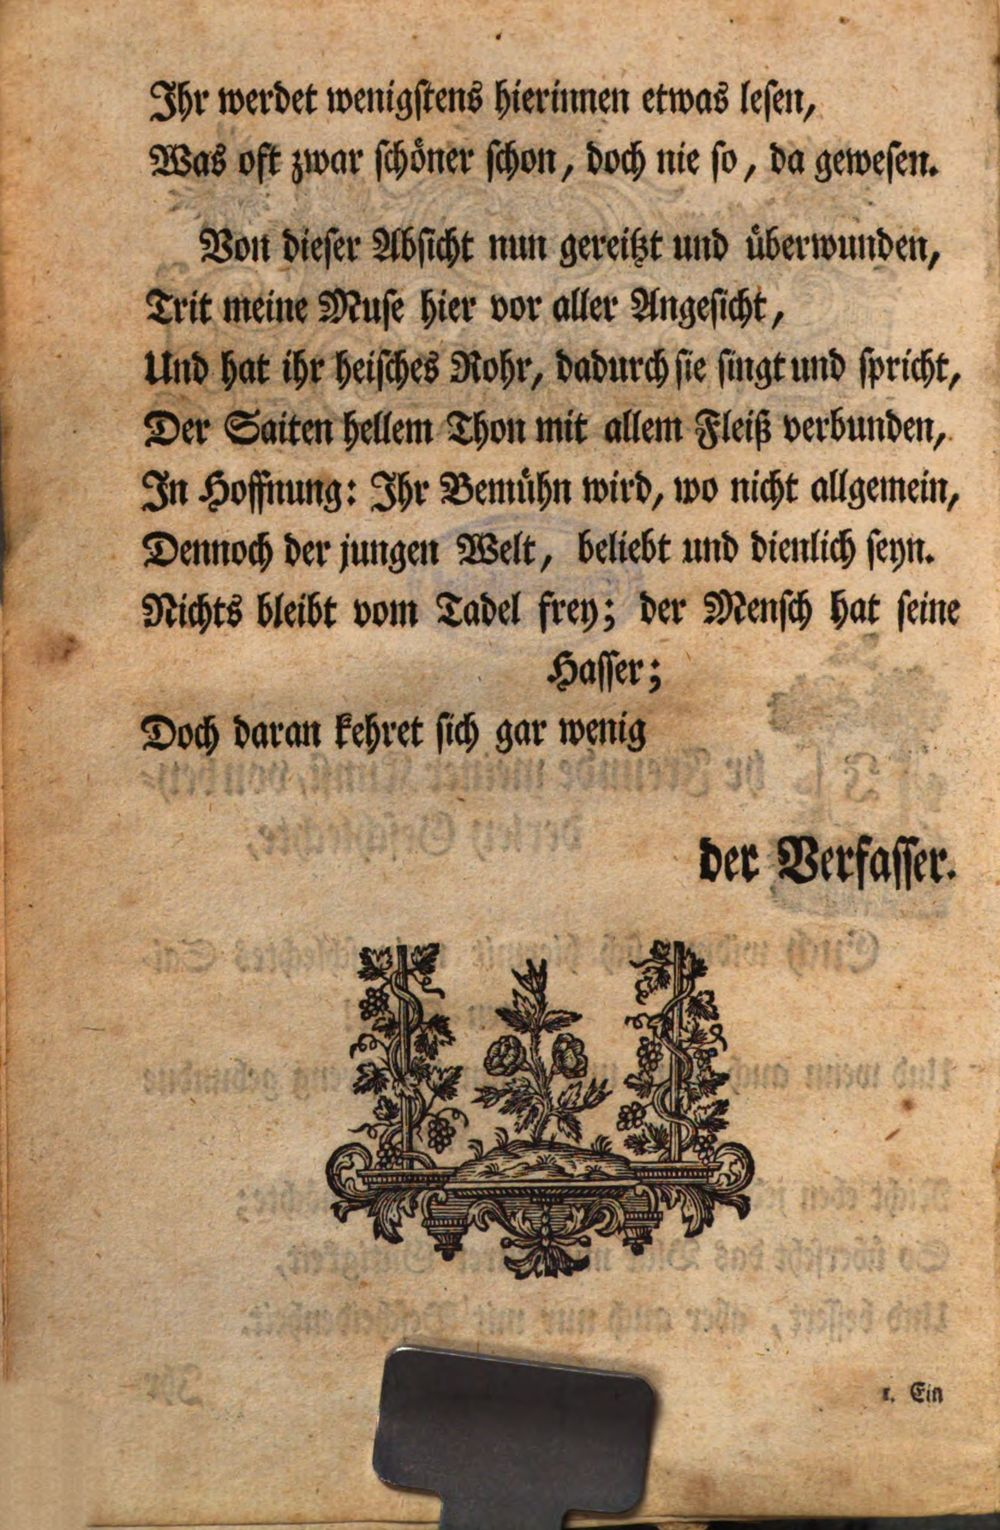 Ihr werdet wenigstens hierinnen etwas lesen,
Was oft zwar schöner schon, doch nie so, da gewesen.
Von dieser Absicht nun gereitzt und überwunden,
Trit meine Muse hier vor aller Angesicht,
Und hat ihr heisches Rohr, dadurch sie singt und spricht,
Der Saiten hellem Thon mit allem Fleiß verbunden,
In Hoffnung: Ihr Bemühn wird, wo nicht allgemein,
Dennoch der jungen Welt, beliebt und dienlich seyn.
Nichts bleibt vom Tadel frey; der Mensch hat seine
Hasser;
Doch daran kehret sich gar wenig
der Verfasser.
1. Ein